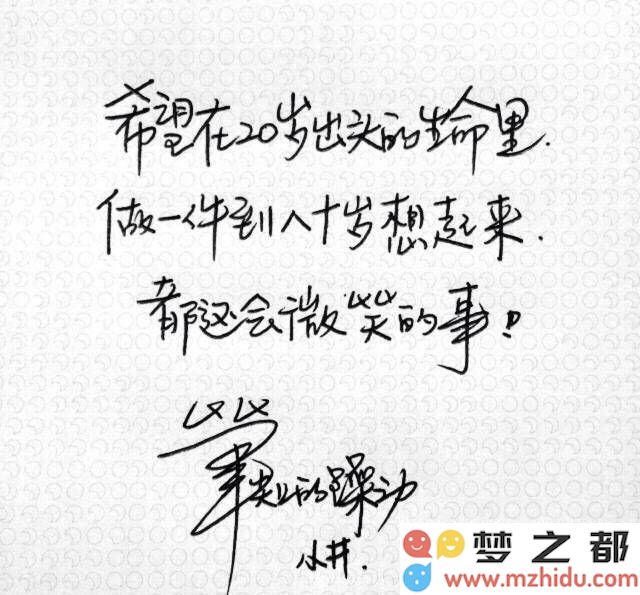 希望在20岁出头的生命里.
做一件到八十岁想起来.
都还会微笑的事!
笔尖上的躁动
小井.
梦之都
www.mzhidu.com